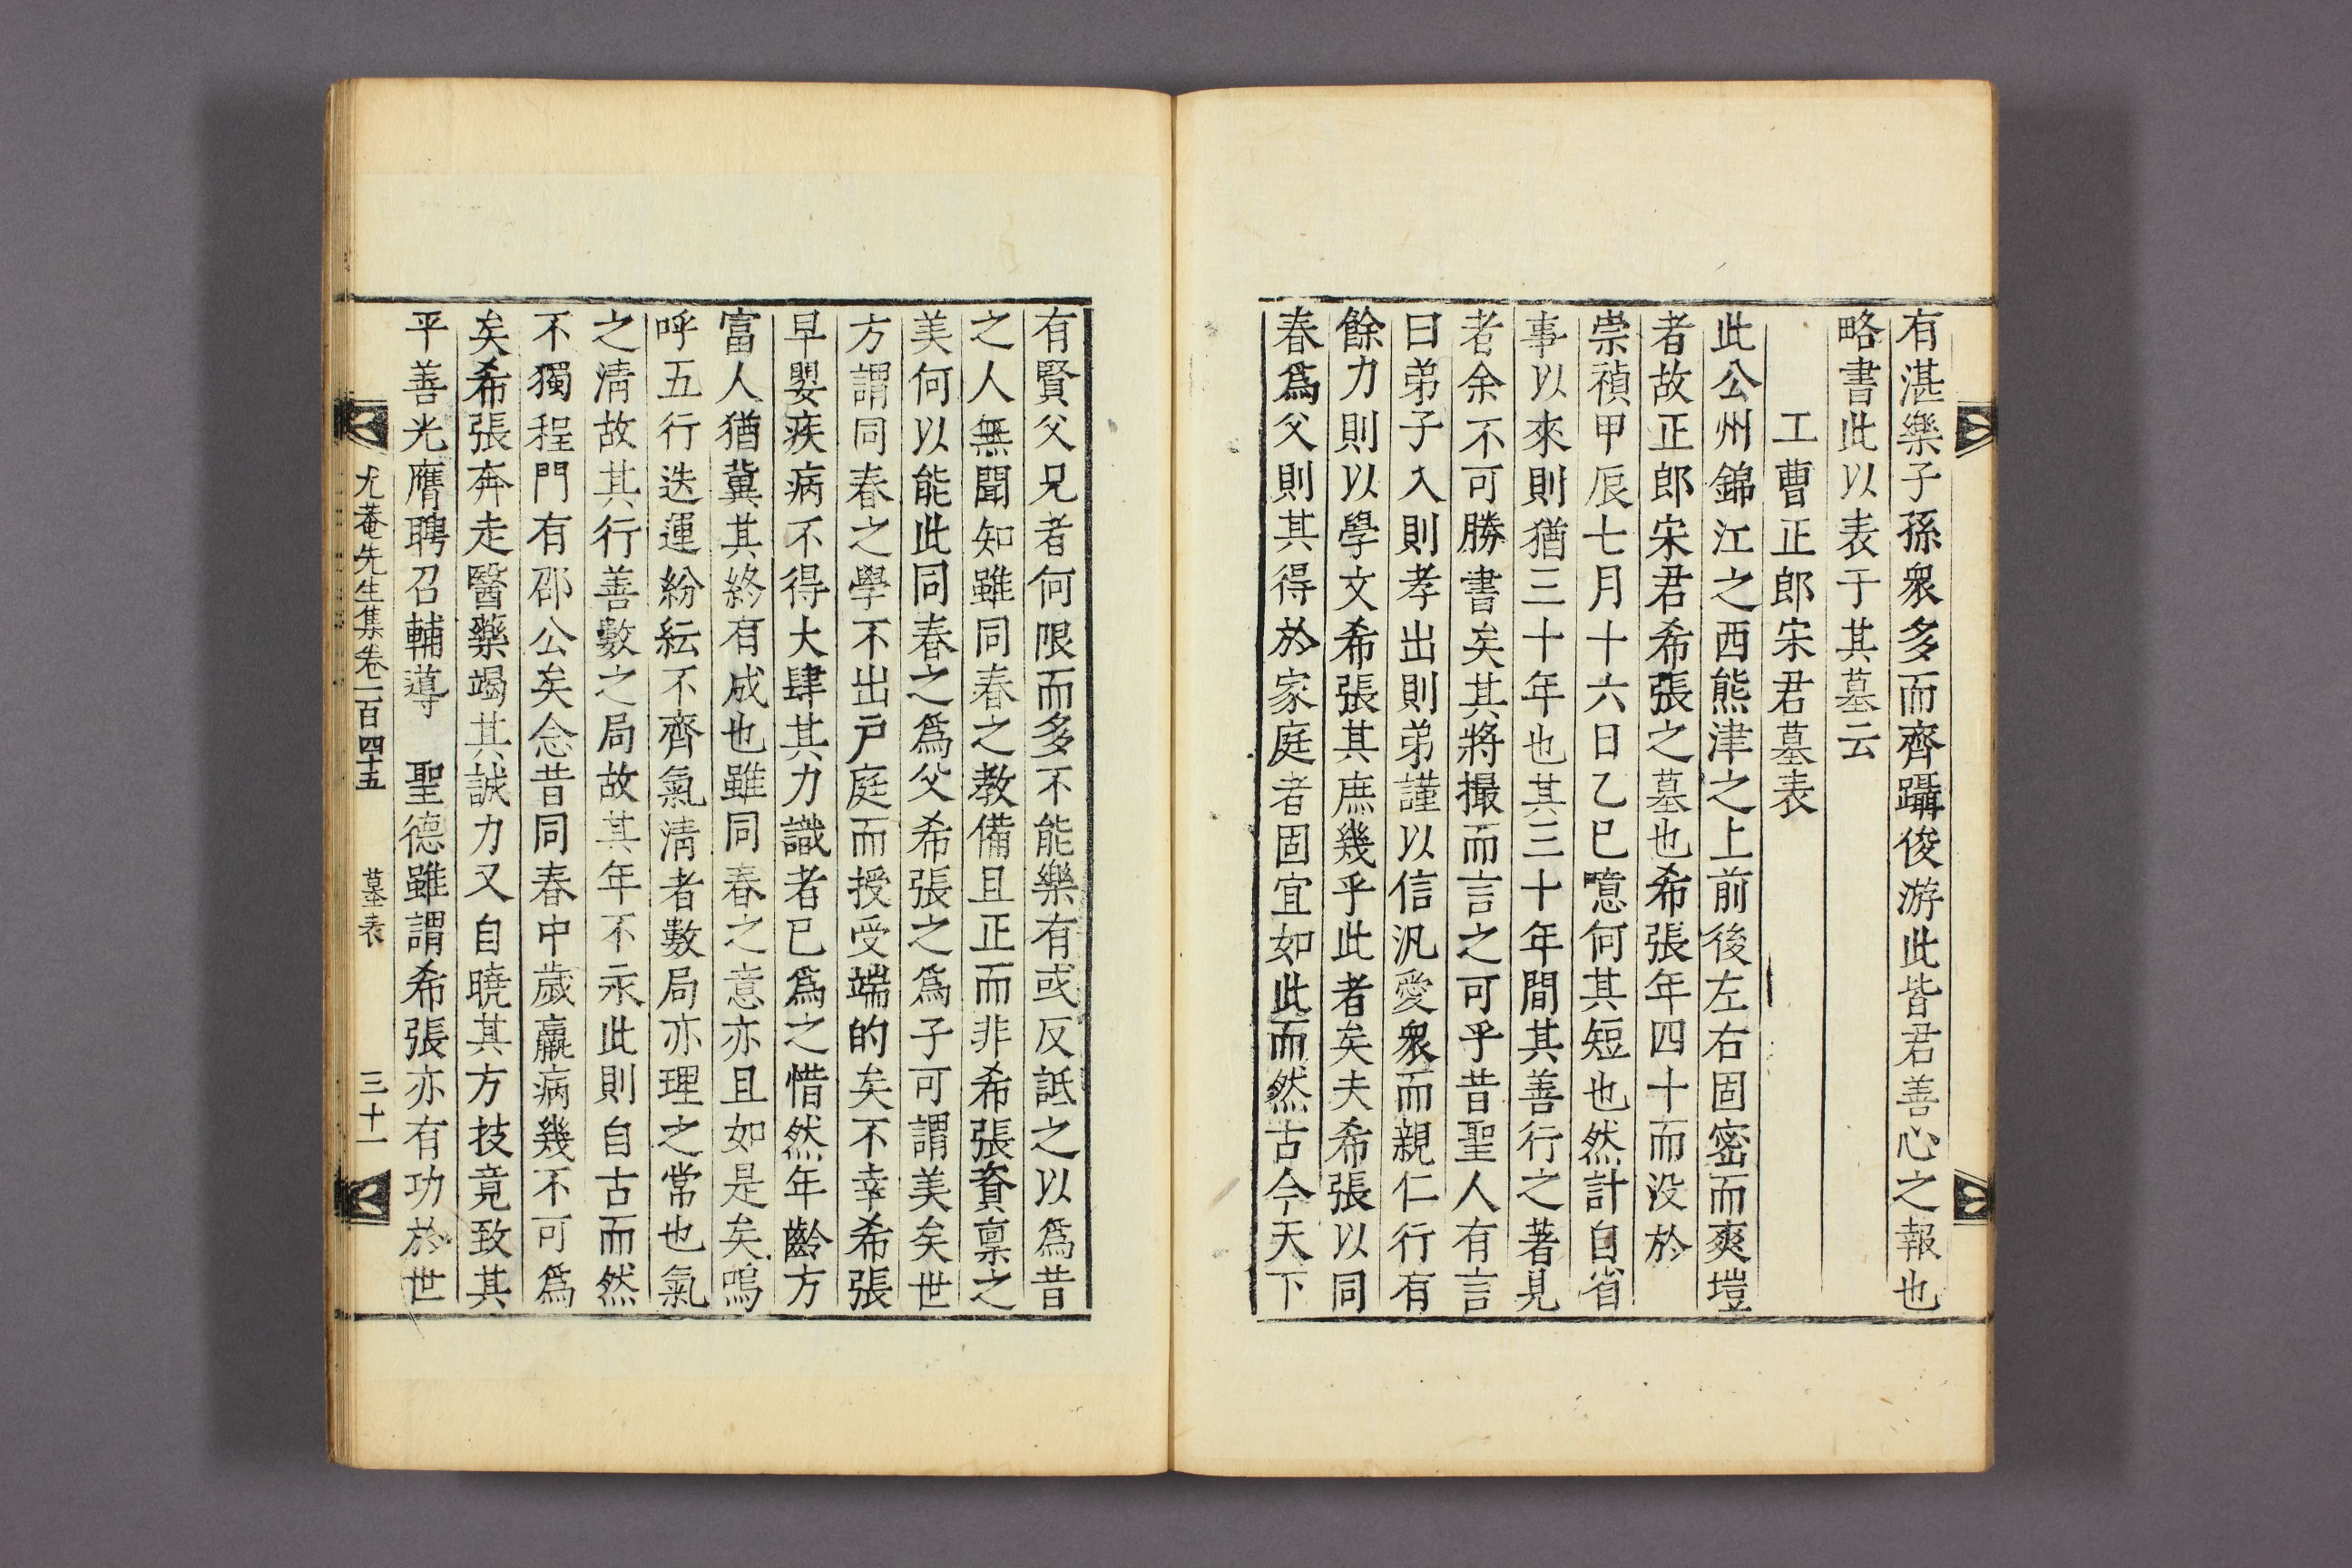 有湛樂子孫衆多而齊躡俊游此皆君善心之報也
略書此以表于其墓云
工曹正郎宋君墓表
此公州錦江之西熊津之上前後左右固密而爽塏
者故正郎宋君希張之墓也希張年四十而没於
崇禎甲辰七月十六日乙巳噫何其短也然計自省
事以來則猶三十年也其三十年間其善行之著見
者余不可勝書矣其將撮而言之可乎昔聖人有言
曰弟子入則孝出則弟謹以信汎愛衆而親仁行有
餘力則以學文希張其庶幾乎此者矣夫希張以同
春爲父則其得於家庭者固宜如此而然古今天下
有賢父兄者何限而多不能樂有或反詆之以爲昔
之人無聞知雖同春之教備且正而非希張資禀之
美何以能此同春之爲父希張之爲子可謂美矣世
方謂同春之學不出戸庭而授受端的矣不幸希張
早嬰疾病不得大肆其力識者已爲之惜然年齡方
富人猶冀其終有成也雖同春之意亦且如是矣嗚
呼五行迭運紛紜不齊氣清者數局亦理之常也氣
之清故其行善數之局故其年不永此則自古而然
不獨程門有邵公矣念昔同春中歲羸病幾不可爲
矣希張奔走醫藥竭其誠力又自曉其方技竟致其
平善光膺聘召輔導　聖德雖謂希張亦有功於世
尤菴先生集卷一百四十五　墓表　三十一